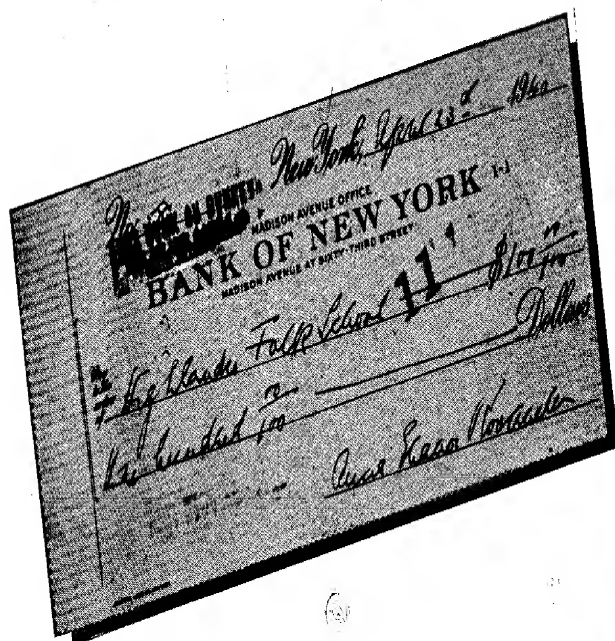 No.
New York, April 23d 1940
MADISON AVENUE OFFICE
BANK OF NEW YORK 1-1
MADISON AVENUE AT SIXTY-THIRD STREET
Highlander Folk School $100 00/100
11
One hundred 00/100 Dollars
Anna Eleanor Roosevelt